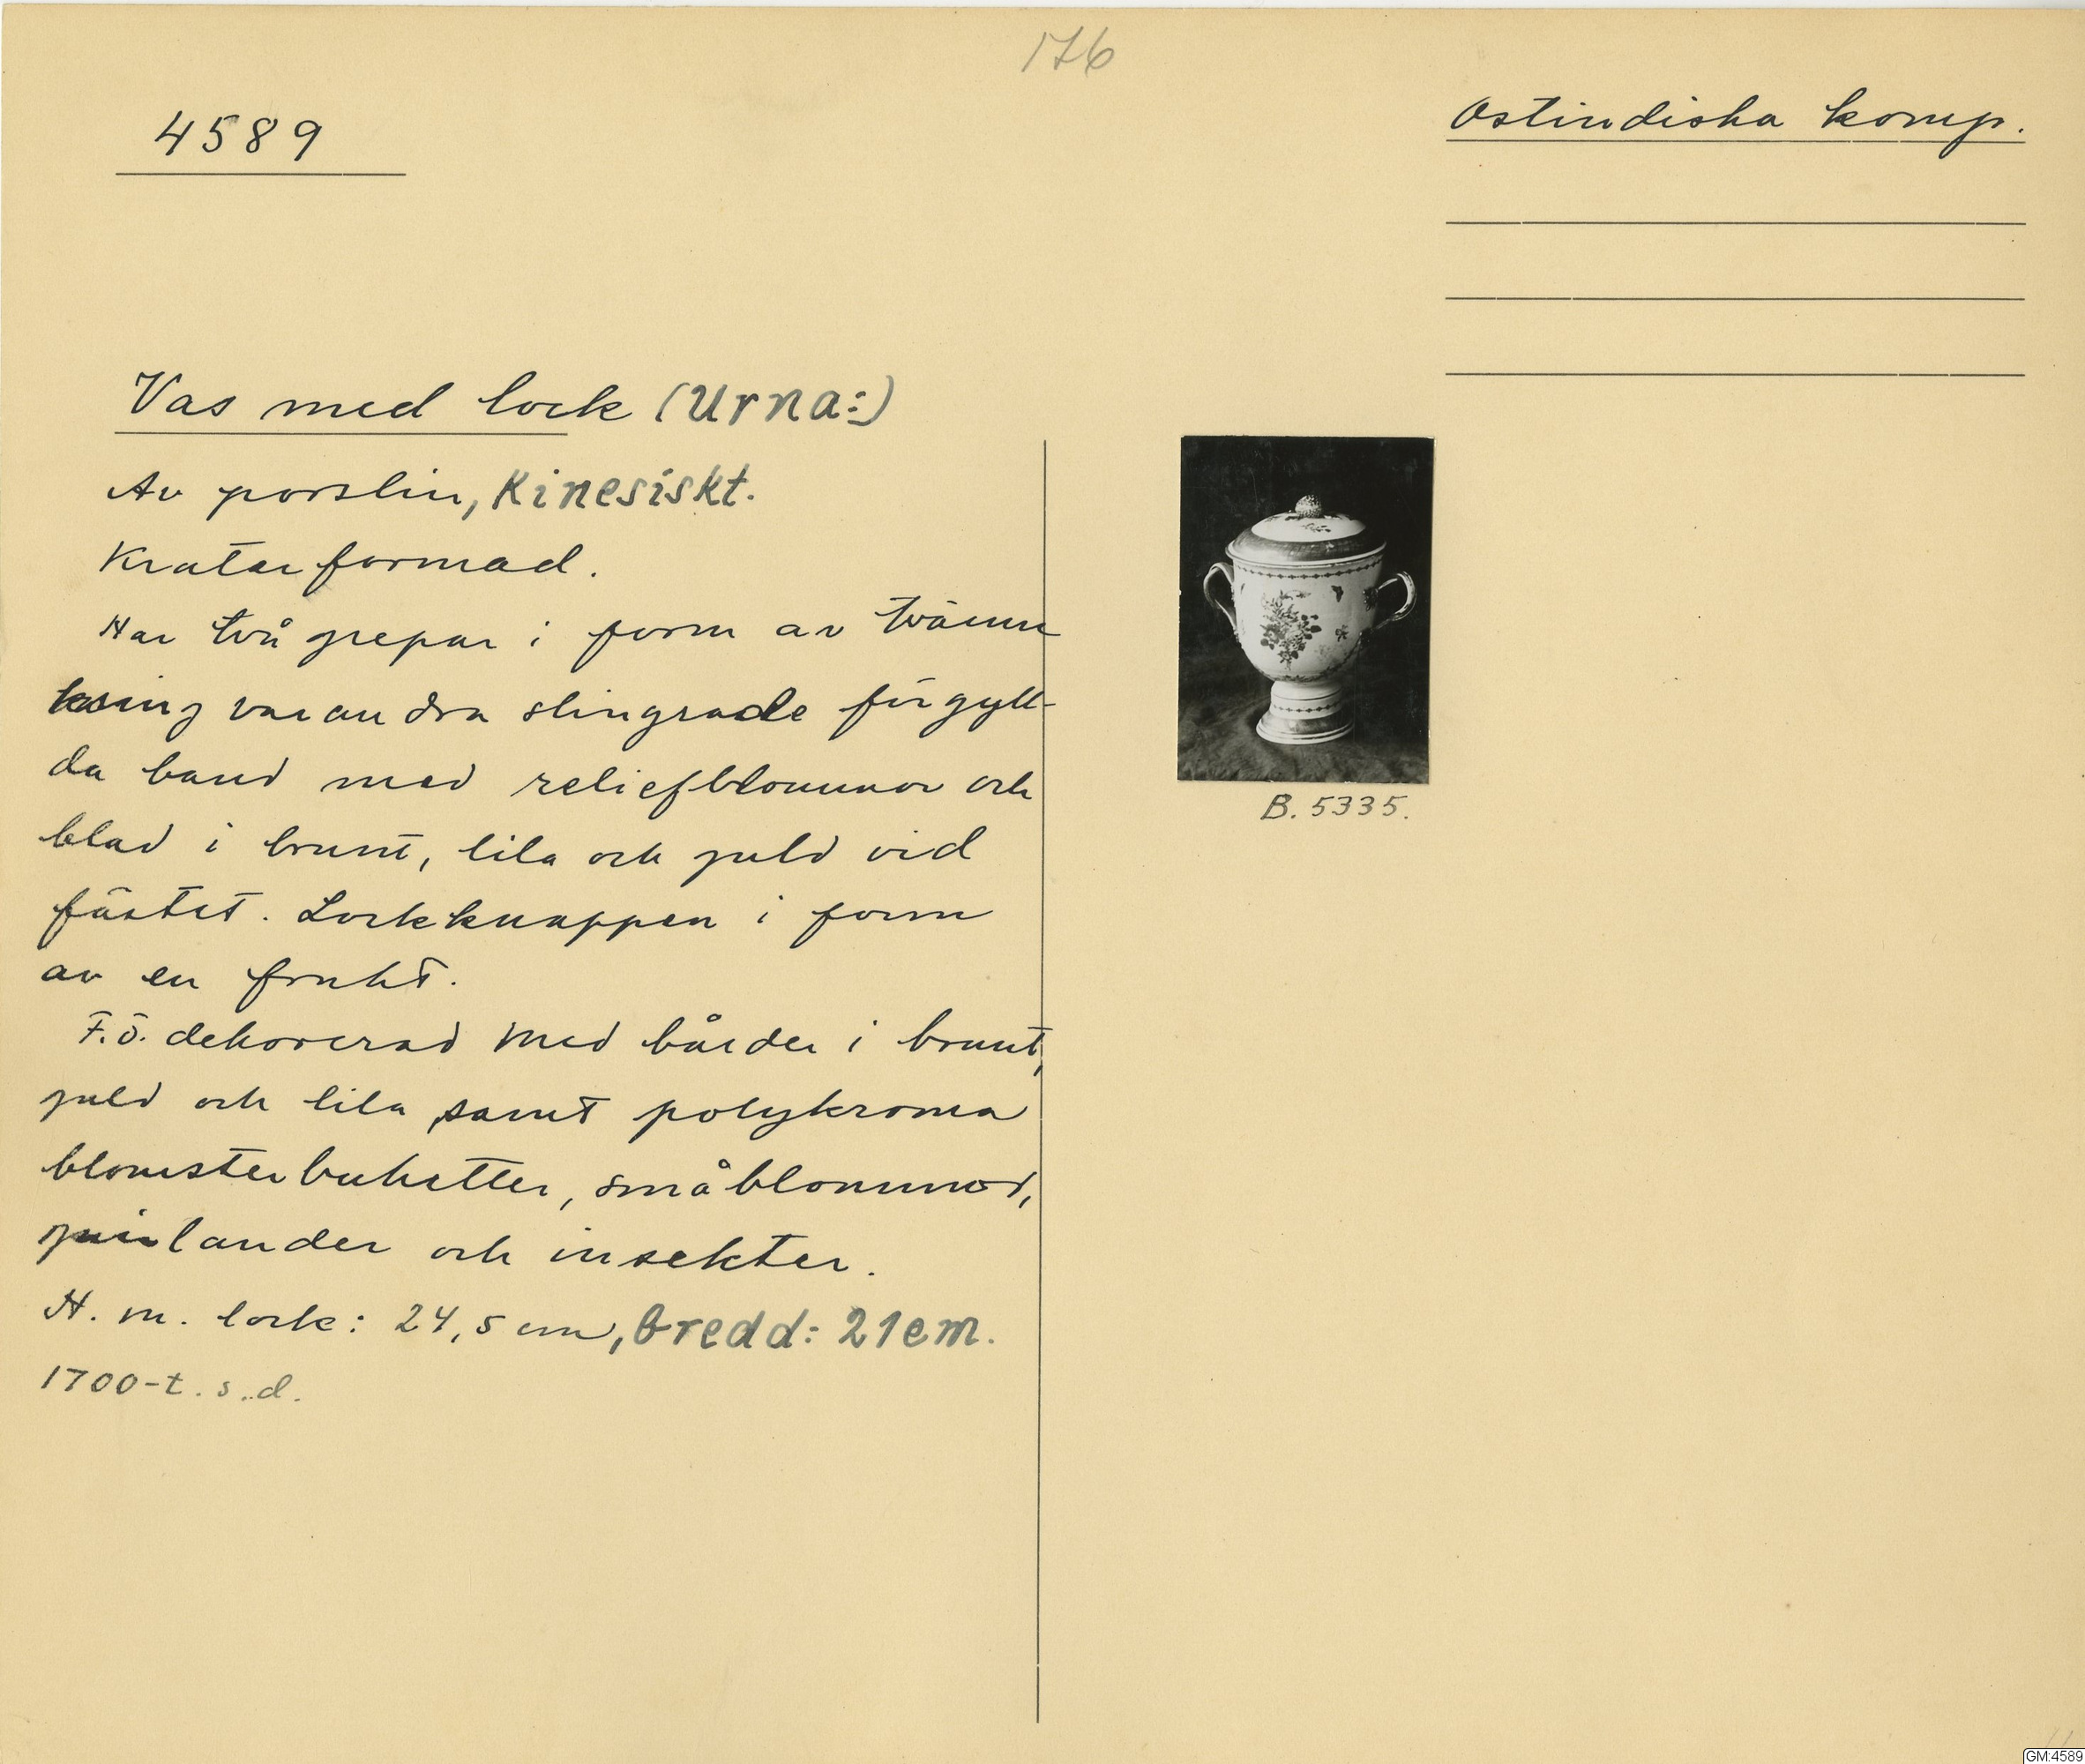 176
4589
Ostindiska komp.
Vas med lock (Urna:)
Av porslin, Kinesiskt.
Kraterformad.
Har två grepar i form av tvänne
kring varandra slingrade förgyll-
da band med reliefblommor och
blad i brunt, lila och guld vid
fästet. Lockknappen i form
av en frukt.
F.ö. dekorerad med bårder i brunt,
guld och lila samt polykroma
blomsterbuketter, småblommor,
girlander och insekter.
H. m. lock: 24,5 cm, bredd: 21cm.
1700-t. s.d.
B. 5335.
GM:4589